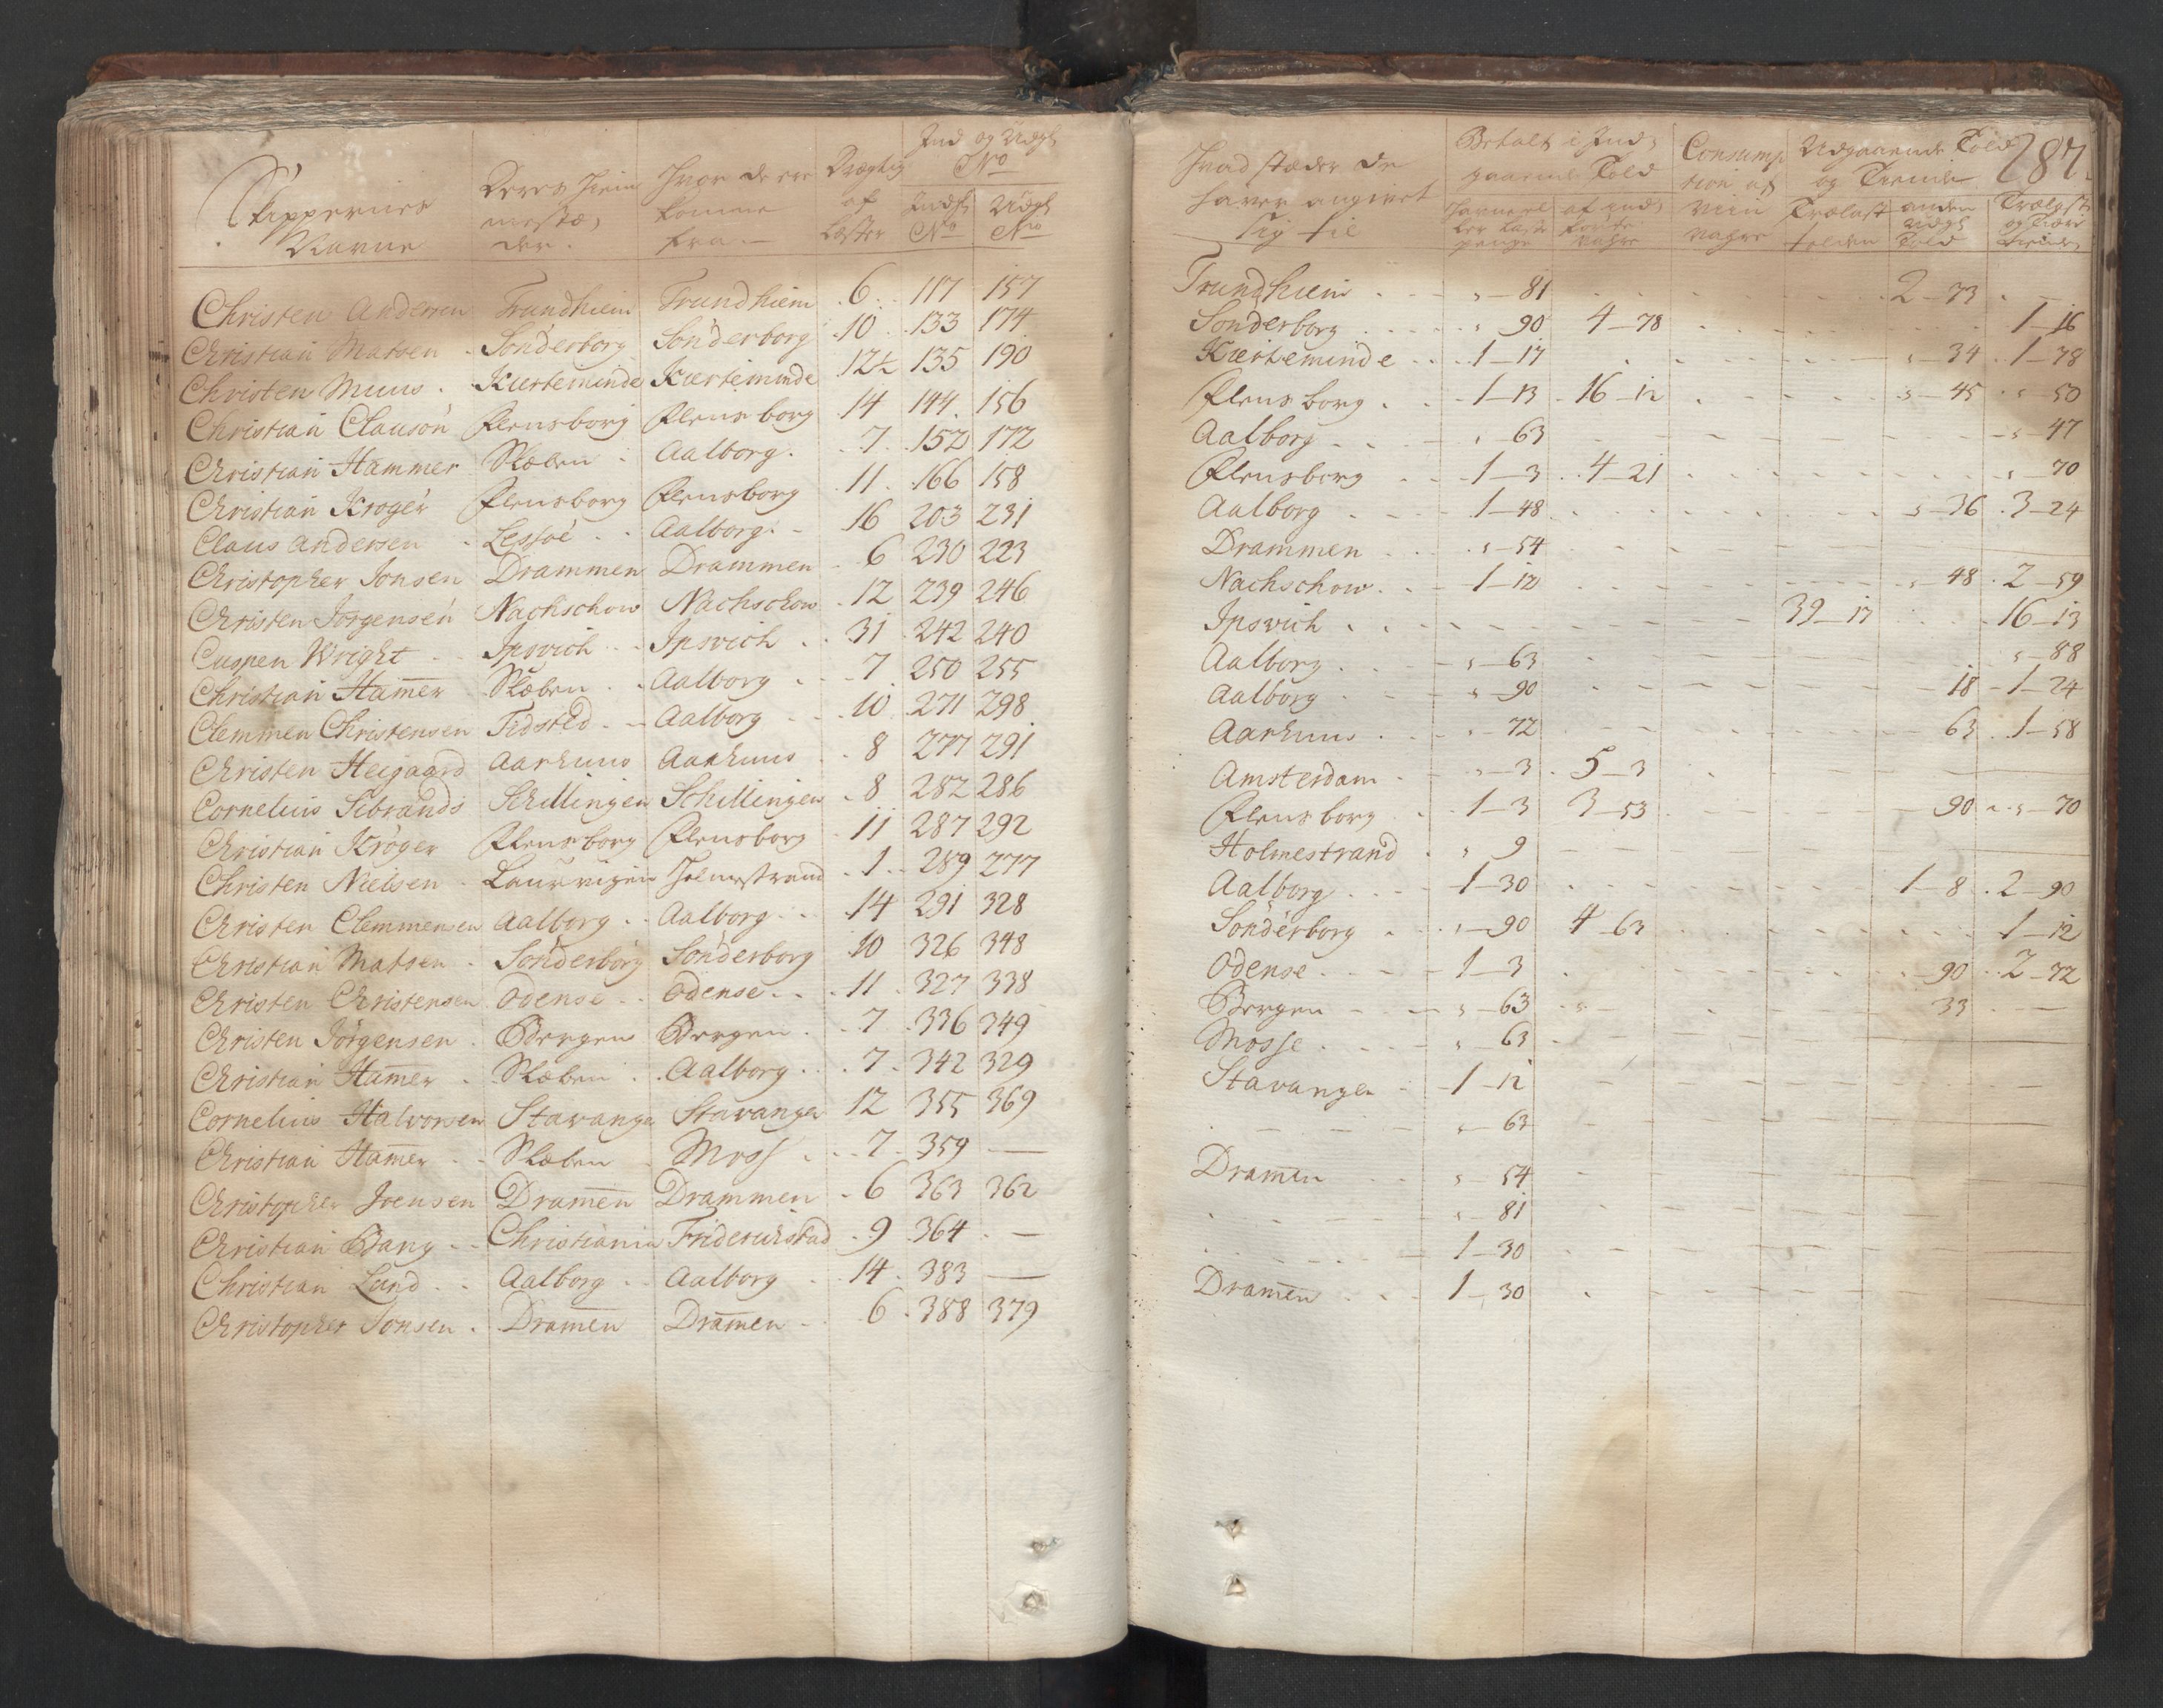 Skippernes Navne
Deres Hiemmestæder
Hvor de ere komme fra
Drægtig af Læster
Ind og Udgl No
Indgl No
Udgl No
Christen Andersen Trundhiem Trundhiem 6 117 157
Christian Matsen Sönderborg Sönderborg 10 133 174
Christen Muus Kierteminde Kierteminde 12½ 135 190
Christian Clauson Flensborg Flensborg 14 144 156
Christian Hammer Aalborg 7 152 172
Christian Kroger Flensborg Flensborg 11 166 158
Claus Andersen Lessöe Aalborg 16 203 231
Christopher Jonsen Drammen Drammen 6 230 223
Christen Jörgensen Nachschow Nachschow 12 239 246
Cuspen Wright Ipsvich Ipsvich 31 242 240
Christian Ham̅er Aalborg 7 250 255
Clemmen Christensen Tidsted Aalborg 10 271 298
Christen Heigaard Aarhuus Aarhuus 8 277 291
Cornelius Sibrands Schillingen Schillingen 8 282 286
Christian Kröger Flensborg Flensborg 11 287 292
Christen Nielsen Laurvigen Holmestrand 1 289 277
Christen Clemmensen Aalborg Aalborg 14 291 328
Christian Matsen Sönderborg Sönderborg 10 326 348
Christen Christensen Odense Odense 11 327 338
Christen Jörgensen Bergen Bergen 7 336 349
Christian Ham̅er Aalborg 7 342 329
Cornelius Halvorsen Stavanger Stavanger 12 355 369
Christian Ham̅er Moss 7 359 —
Christopher Joensen Dram̅en Drammen 6 363 362
Christian Bang Christiania Friderichstad 9 364 —
Christian Lund Aalborg Aalborg 14 383 —
Christopher Jonsen Dram̅en Dram̅en 6 388 379
287.
Hvad stæder de haver angivet sig til
Betalt i Indgaaende Told
af indførte Vahre
Consumption af Viin Vahre
Udgaaende Told og Tiende
Trælast tolden
anden Udgl Told
Trælast og Tiære Tiende
Trundhiem " — 81 2 — 73
Sonderborg " 90 4 — 78 1 — 16
Kierteminde 1 — 17 " — 34 1 — 78
Flensborg 1 — 13 16 — 12 " — 45 " — 50
Aalborg " — 63 " — 47
Flensborg 1 — 3 4 — 21 " — 70
Aalborg 1 — 48 " — 36 3 — 24
Drammen " — 54
Nachschow 1 — 12 " — 48 2 — 59
Ipsvich 39 — 17 16 — 13
Aalborg " — 63 " — 88
Aalborg " — 90 18 1 — 24
Aarhuus " — 72 63 1 — 58
Amsterdam " — 3 5 — 3
Flensborg 1 — 3 3 — 53 90 " — 70
Holmestrand " 9
Aalborg 1 — 30 1 — 8 2 — 90
Sonderborg " — 90 4 — 63 1 — 12
Odense 1 — 3 " — 90 2 — 72
Bergen " — 63 33 —
Mosse " — 63
Stavanger 1 — 12
" — 63
Dram̅en " — 54
" — 81
1 — 30
Dram̅en 1 — 30